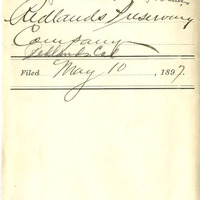 Redlands Preserving
Company
Redlands Cal
Filed May 10, 1897.